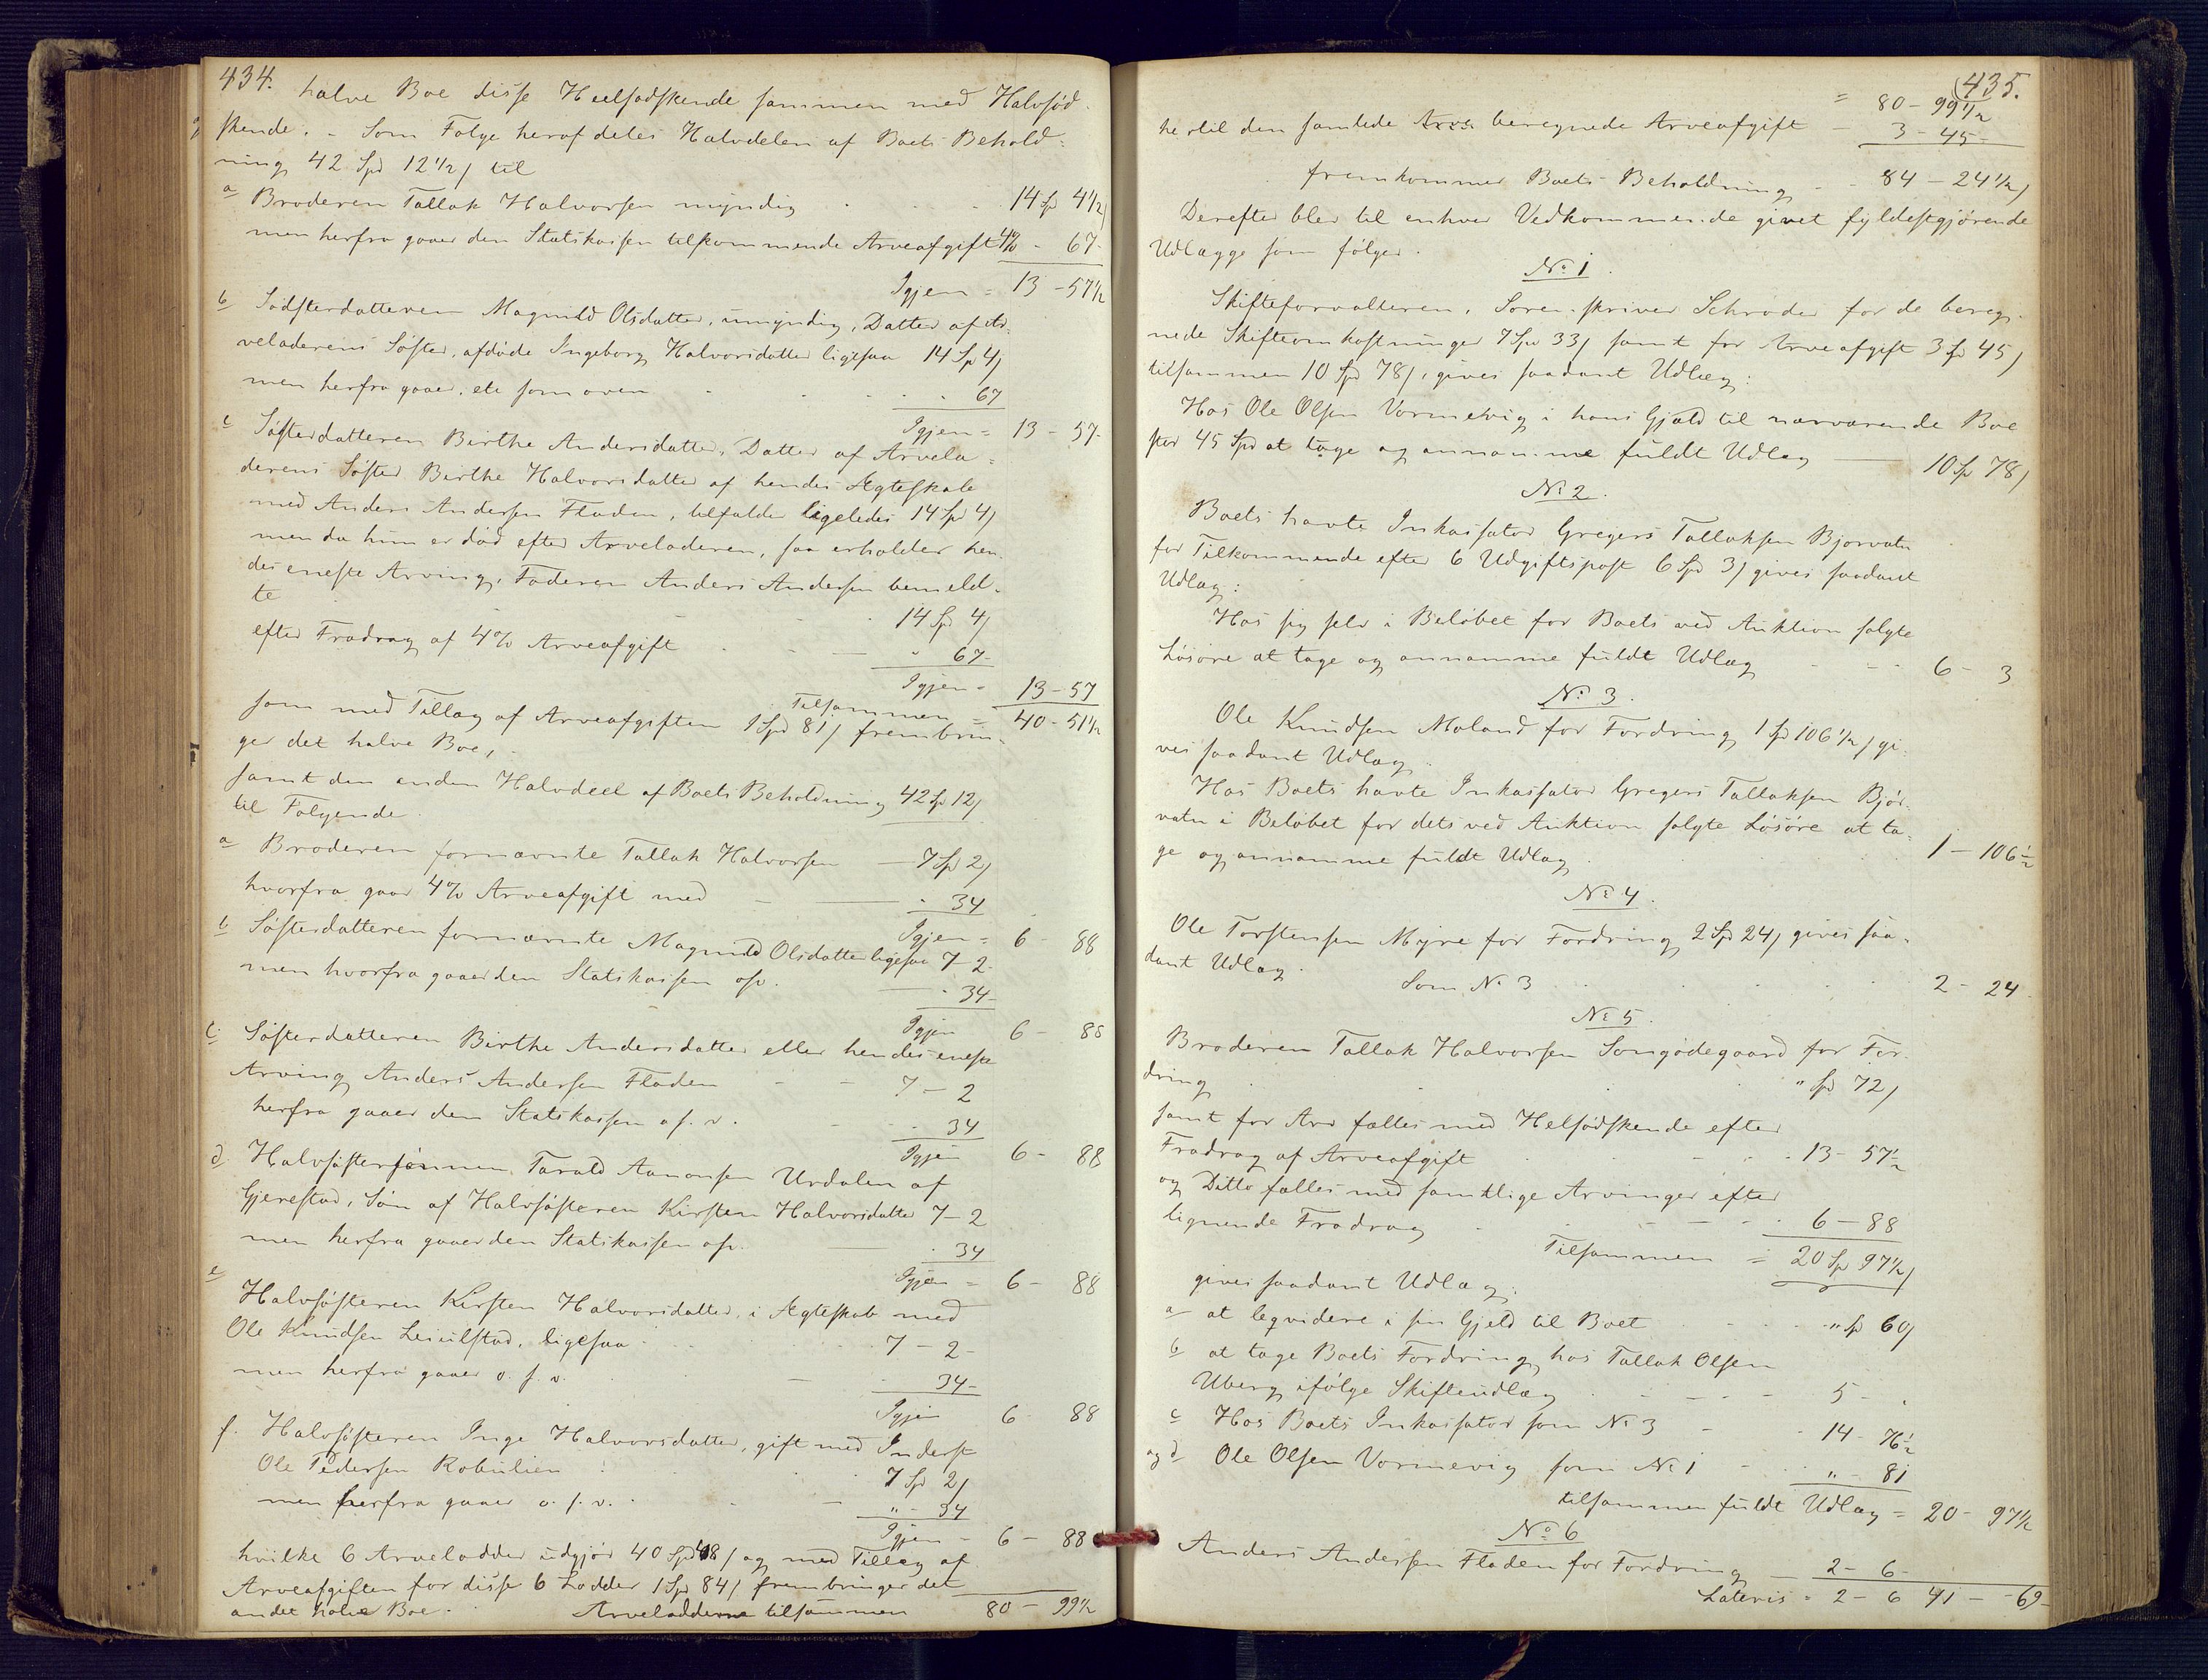 434.
halve Boe disse Heelsødskende sammen med Halvsød-
skende. - Som Følge heraf deles Halvdelen af Boets Behold-
ning 42 Spd 12 1/2 ß til
a Broderen Tallak Halvorsen myndig 14 Sp 4 1/2 ß
men herfra gaaer den Statskassen tilkommende Arveafgift 4% - 67-
Igjen = 13 - 57 1/2
b Sødsterdatteren Magnild Olsdatter, umyndig, Datter af Ar-
veladerens Søster, afdøde Ingeborg Halvorsdatter ligesaa 14 Sp 4 ß
men herfra gaaer, etc som oven 67
Igjen = 13 - 57-
c Søsterdatteren Birthe Andersdatter, Datter af Arvela-
derens Søster Birthe Halvorsdatter af hendes Ægteskab
med Anders Andersen Fladen, tilfalder ligeledes 14 Spd 4 ß
men da hun er død efter Arveladeren, saa erholder hen-
des eneste Arving, Faderen Anders Andersen bemeld-
te 14 Spd 4 ß
efter Fradrag af 4% Arveafgift — " 67-
Igjen = 13 - 57
Tilsammen = 40 - 51 1/2
som med Tillæg af Arveafgiften 1 Spd 81 ß frembrin-
ger det halve Boe,
samt den anden Halvdeel af Boets Beholdning 42 Sp 12 ß
til Følgende
a Broderen fornævnte Tallak Halvorsen — 7 Spd 2 ß
hvorfra gaar 4% Arveafgift med — " 34
Igjen = 6 - 88
b Søsterdatteren fornævnte Magnild Olsdatter ligesaa 7 - 2-
men hvorfra gaaer den Statskassen osv. — " 34-
Igjen 6 - 88
c. Søsterdatteren Birthe Andersdatter eller hendes eneste
Arving Anders Andersen Fladen - - 7 - 2
herfra gaaer den Statskassen o. s. v. - " 34
Igjen 6 - 88
d. Halvsøstersønnen Tarald Aanonsen Urdalen af
Gjerestad, Søn af Halvsøsteren Kirsten Halvorsdatter 7 - 2
men herfra gaaer den Statskassen osv. — " 34
Igjen = 6 - 88
e Halvsøsteren Kirsten Halvorsdatter, i Ægteskab med
Ole Knudsen ligesaa 7 - 2-
men herfra gaaer o. s. v. — " 34-
Igjen 6 - 88
f. Halvsøsteren Inge Halvorsdatter, gift med Inderst
Ole Pedersen 7 Spd 2 ß
men herfra gaaer o. s. v. - — " - 34
Igjen - 6 - 88
hvilke 6 Arvelodder udgjør 40 Spd 48 ß og med Tillæg af
Arveafgiften for disse 6 Lodder 1 Spd 84 ß frembringer det
andet halve Boe. Arvelodderne tilsammen 80 - 99 1/2
435.
= 80 - 99 1/2
hertil den samlede beregnede Arveafgift - 3 - 45-
fremkommer Boets Beholdning - - 84 - 24 1/2 ß
Derefter blev til enhver Vedkommende givet fyldestgjørende
Udlægge som følger.
No 1.
Skifteforvalteren, Sorenskriver Schrøder for de bereg-
nede Skifteomkostninger 7 Spd 33 ß samt for Arveafgift 3 Sp 45 ß
tilsammen 10 Spd 78 ß, gives saadant Udlæg:
Hos Ole Olsen Vormelvig i hans Gjæld til nærværende Boe
stor 45 Spd at tage og annamme fuldt Udlæg — 10 Sp 78 ß
No 2.
Boets havte Inkassator Gregers Tallaksen Bjorvatn
for Tilkommende efter 6 Udgiftspost 6 Spd 3 ß gives saadant
Udlæg:
Hos sig selv i Beløbet for Boets ved Auktion solgte
Løsøre at tage og annamme fuldt Udlæg - - - 6 - 3
No 3.
Ole Knudsen Moland for Fordring 1 Sp 106 1/2 ß gi-
ves saadant Udlæg.
Hos Boets havte Inkassator Gregers Tallaksen Bjør-
vatn i Beløbet for dets ved Auktion solgte Løsøre at ta-
ge og annamme fuldt Udlæg 1 - 106 1/2
No 4.
Ole Torstensen Myre for Fordring 2 Spd 24 ß gives saa-
dant Udlæg.
Som No 3 2 - 24
No 5.
Broderen Tallak Halvorsen Songødegaard for For-
dring " Spd 72 ß
samt for Arv fælles med Helsødskende efter
Fradrag af Arveafgift 13 - 57 1/2
og Ditto fælles med samtlige Arvinger efter
lignende Fradrag 6 - 88
Tilsammen = 20 Sp 97 1/2 ß
gives saadant Udlæg:
a at leqvidere i sin Gjeld til Boet " Sp 60 ß
b at tage Boets Fordring hos Tallak Olsen
Uberg ifølge Skifteudlæg - - - 5 - "
c Hos Boets Inkassator som No 3 - 14 - 76 1/2
og d Ole Olsen Vormevig som No 1 - " - 81
tilsammen fuldt Udlæg = 20 - 97 1/2
No 6
Anders Andersen Fladen for Fordring — 2 - 6-
Lateris = 2 - 6 41 - - 69-